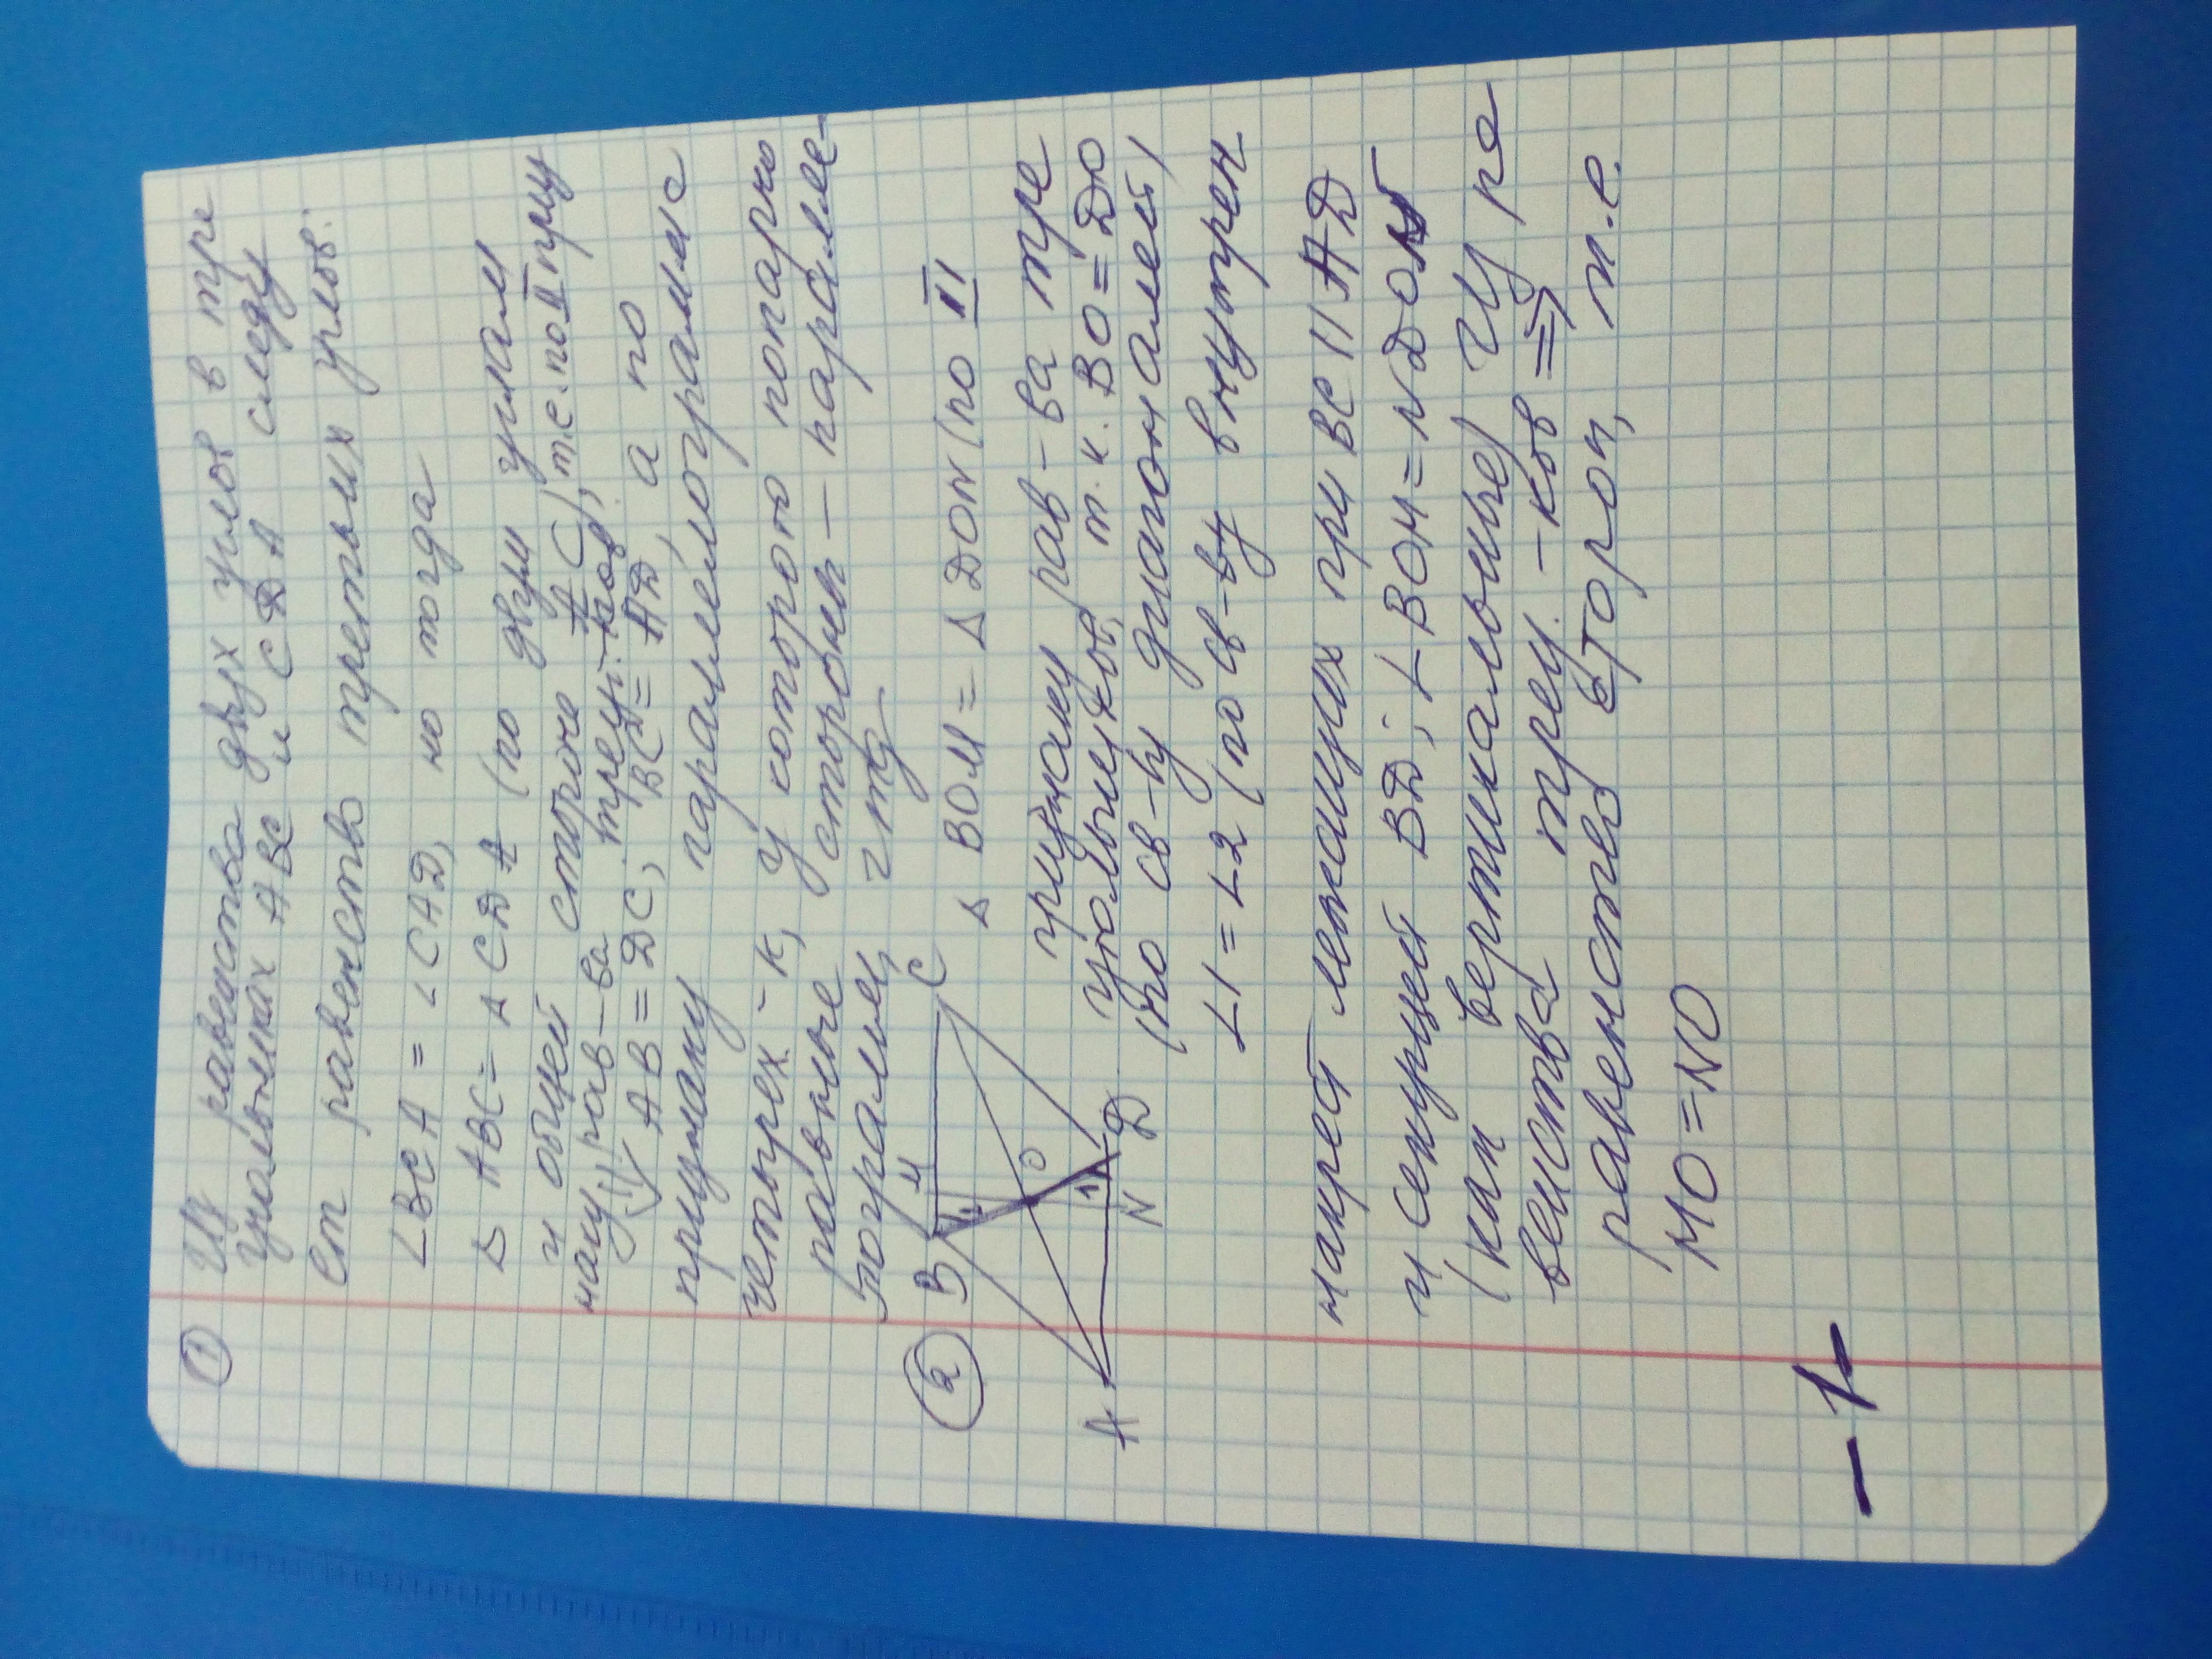 ① Из равенства двух углов в тре
угольниках АВС и СДА следу
ет равенство третьих углов.
∠ВСА = ∠САД, но тогда
∆ АВС = ∆ СДА (по двум углам
и общей стороне АС), т.е. по II приз
наку рав-ва треуг-ков.
⇓ АВ = ДС, ВС = АД, а по
признаку параллелограмма с
четырех-к, у которого попарно
равные стороны – паралле-
лограмм,
чтд
② ∆ ВОМ = ∆ ДОN (по II
В М С
О
А N Д
1 2
признаку рав-ва тре
угольников, т.к. ВО = ДО
(по св-ву диагоналей)
∠1 = ∠2 (по св-ву внутрен.
накрест лежащих при ВС || АД
и секущей ВД; ∠ВОМ = NДОМ
(как вертикальные) Из ра
венства треу.-ков ⇒
равенство сторон, т.е.
МО = NО
– 1